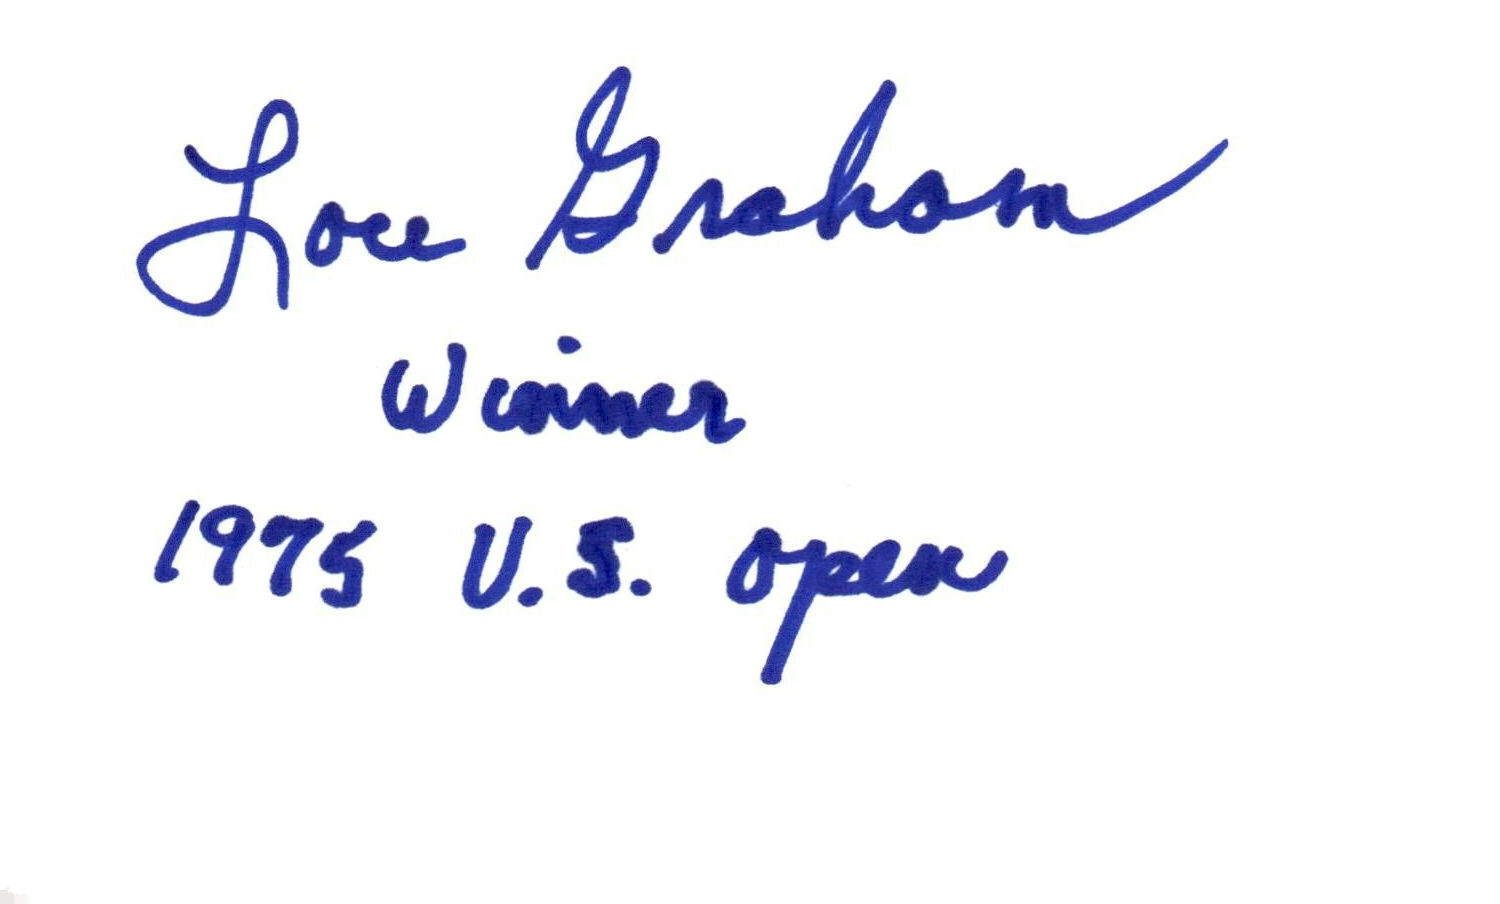 Lou Graham
Winner
1975 U.S. Open